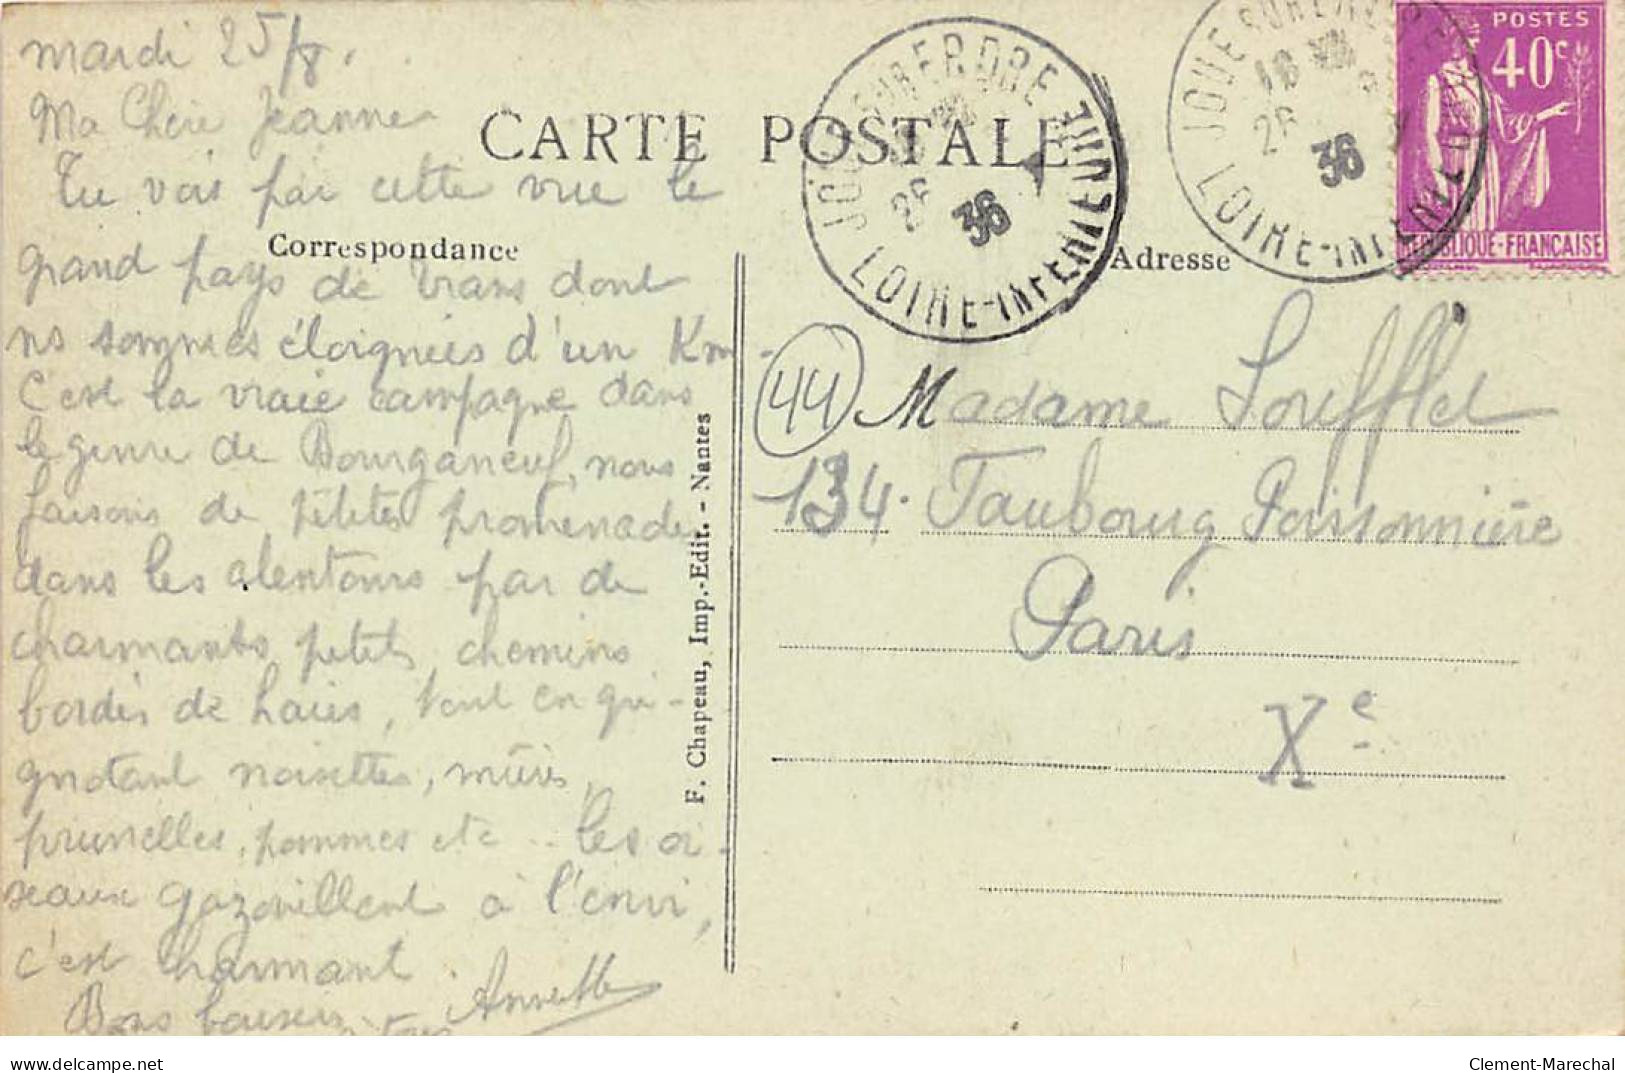 mardi 25/8.
Ma Chère Jeanne
Tu vois par cette vue le
grand pays de Trans dont
ns sommes éloignées d'un Km.
C'est la vraie campagne dans
le genre de Bourganeuf, nous
faisons de petites promenades
dans les alentours par de
charmants petits chemins
bordés de haies, tout en gri-
gnotant noisettes, mûres,
prunelles, pommes etc .. les oi-
seaux gazouillent à l'envi,
c'est charmant.
Bons baisers à tous Annette
CARTE POSTALE
Correspondance
Adresse
F. Chapeau, Imp.-Edit. - Nantes
JOUE SUR ERDRE
26
36
LOIRE-INFERIEURE
JOUE SUR ERDRE
18 VIII
26
36
LOIRE-INFERIEURE
POSTES
40c
REPUBLIQUE-FRANÇAISE
44
Madame Soufflet
134. Faubourg Poissonnière
Paris
Xe
delcampe.net
Clement-Marechal